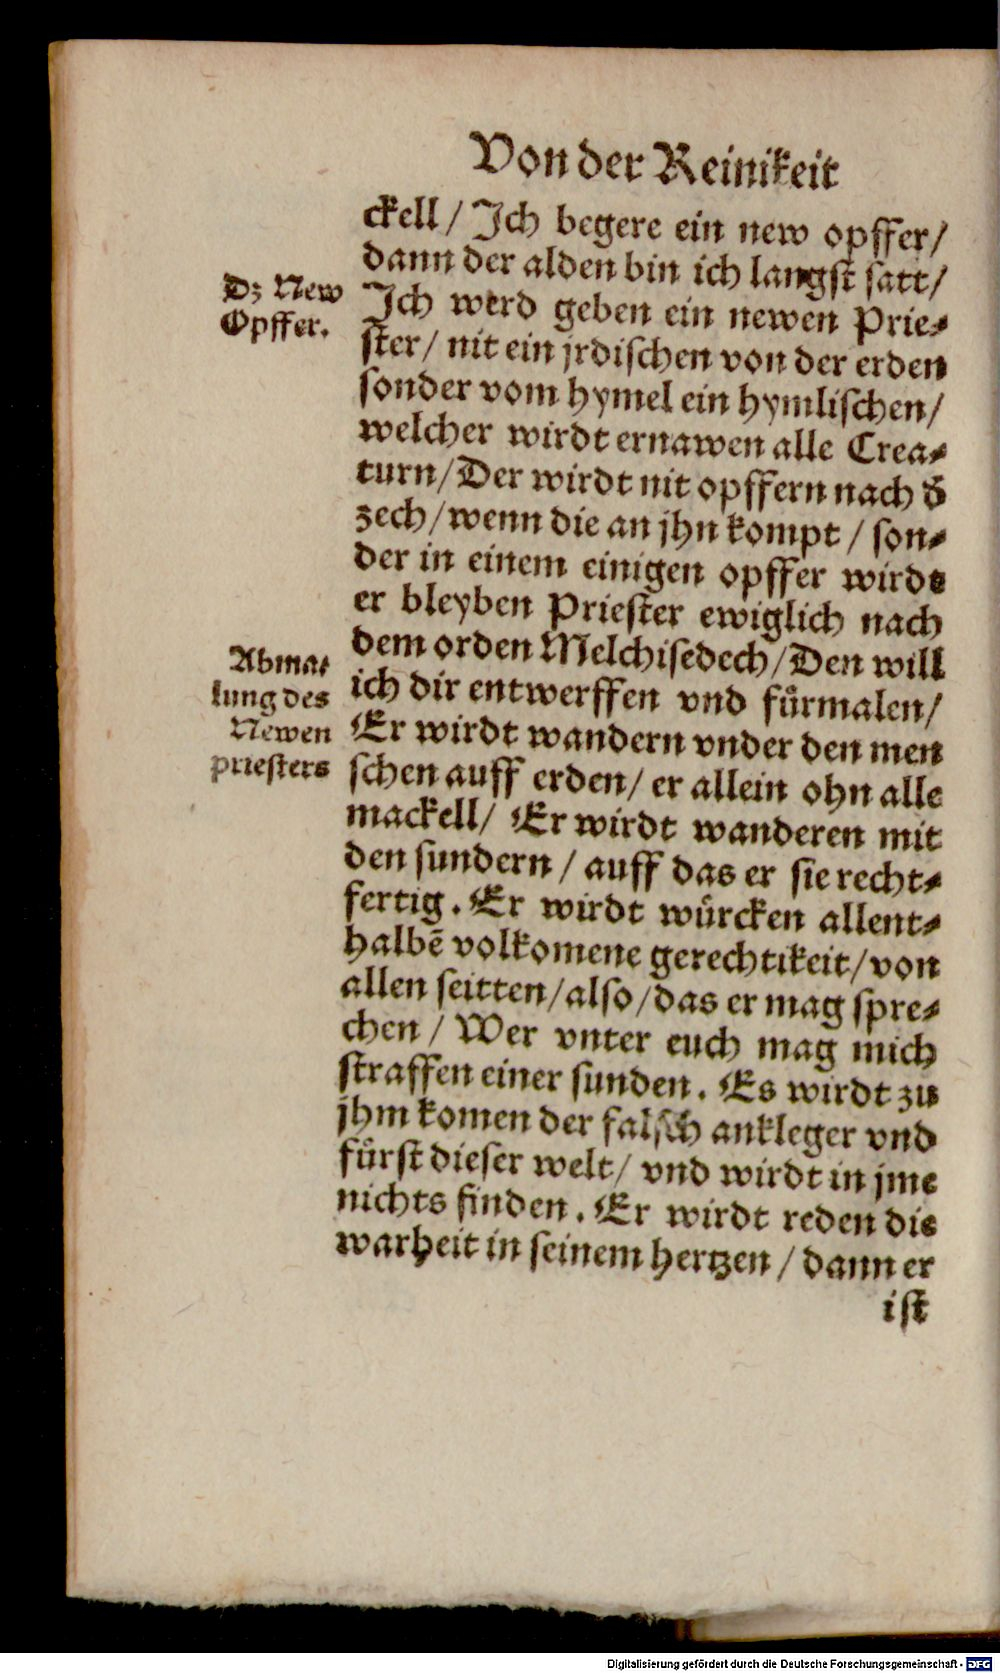 Von der Reinikeit
ckell / Ich begere ein new opffer /
dann der alden bin ich langst satt /
Dz New
Opffer.
Ich werd geben ein newen Prie⸗
ster / nit ein jrdischen von der erden
sonder vom hymel ein hymlischen /
welcher wirdt ernawen alle Crea⸗
turn / Der wirdt nit opffern nach d̕
zech / wenn die an jhn kompt / son⸗
der in einem einigen opffer wirdt
er bleyben Priester ewiglich nach
dem orden Melchisedech / Den will
Abma⸗
lung des
Newen
priesters
ich dir entwerffen vnd fuͤrmalen /
Er wirdt wandern vnder den men
schen auff erden / er allein ohn alle
mackell / Er wirdt wanderen mit
den sundern / auff das er sie recht⸗
fertig. Er wirdt wuͤrcken allent⸗
halbē volkomene gerechtikeit / von
allen seitten / also / das er mag spre⸗
chen / Wer vnter euch mag mich
straffen einer sunden. Es wirdt zu
jhm komen der falsch ankleger vnd
fuͤrst dieser welt / vnd wirdt in jme
nichts finden. Er wirdt reden die
warheit in seinem hertzen / dann er
ist
Digitalisierung gefördert durch die Deutsche Forschungsgemeinschaft - DFG